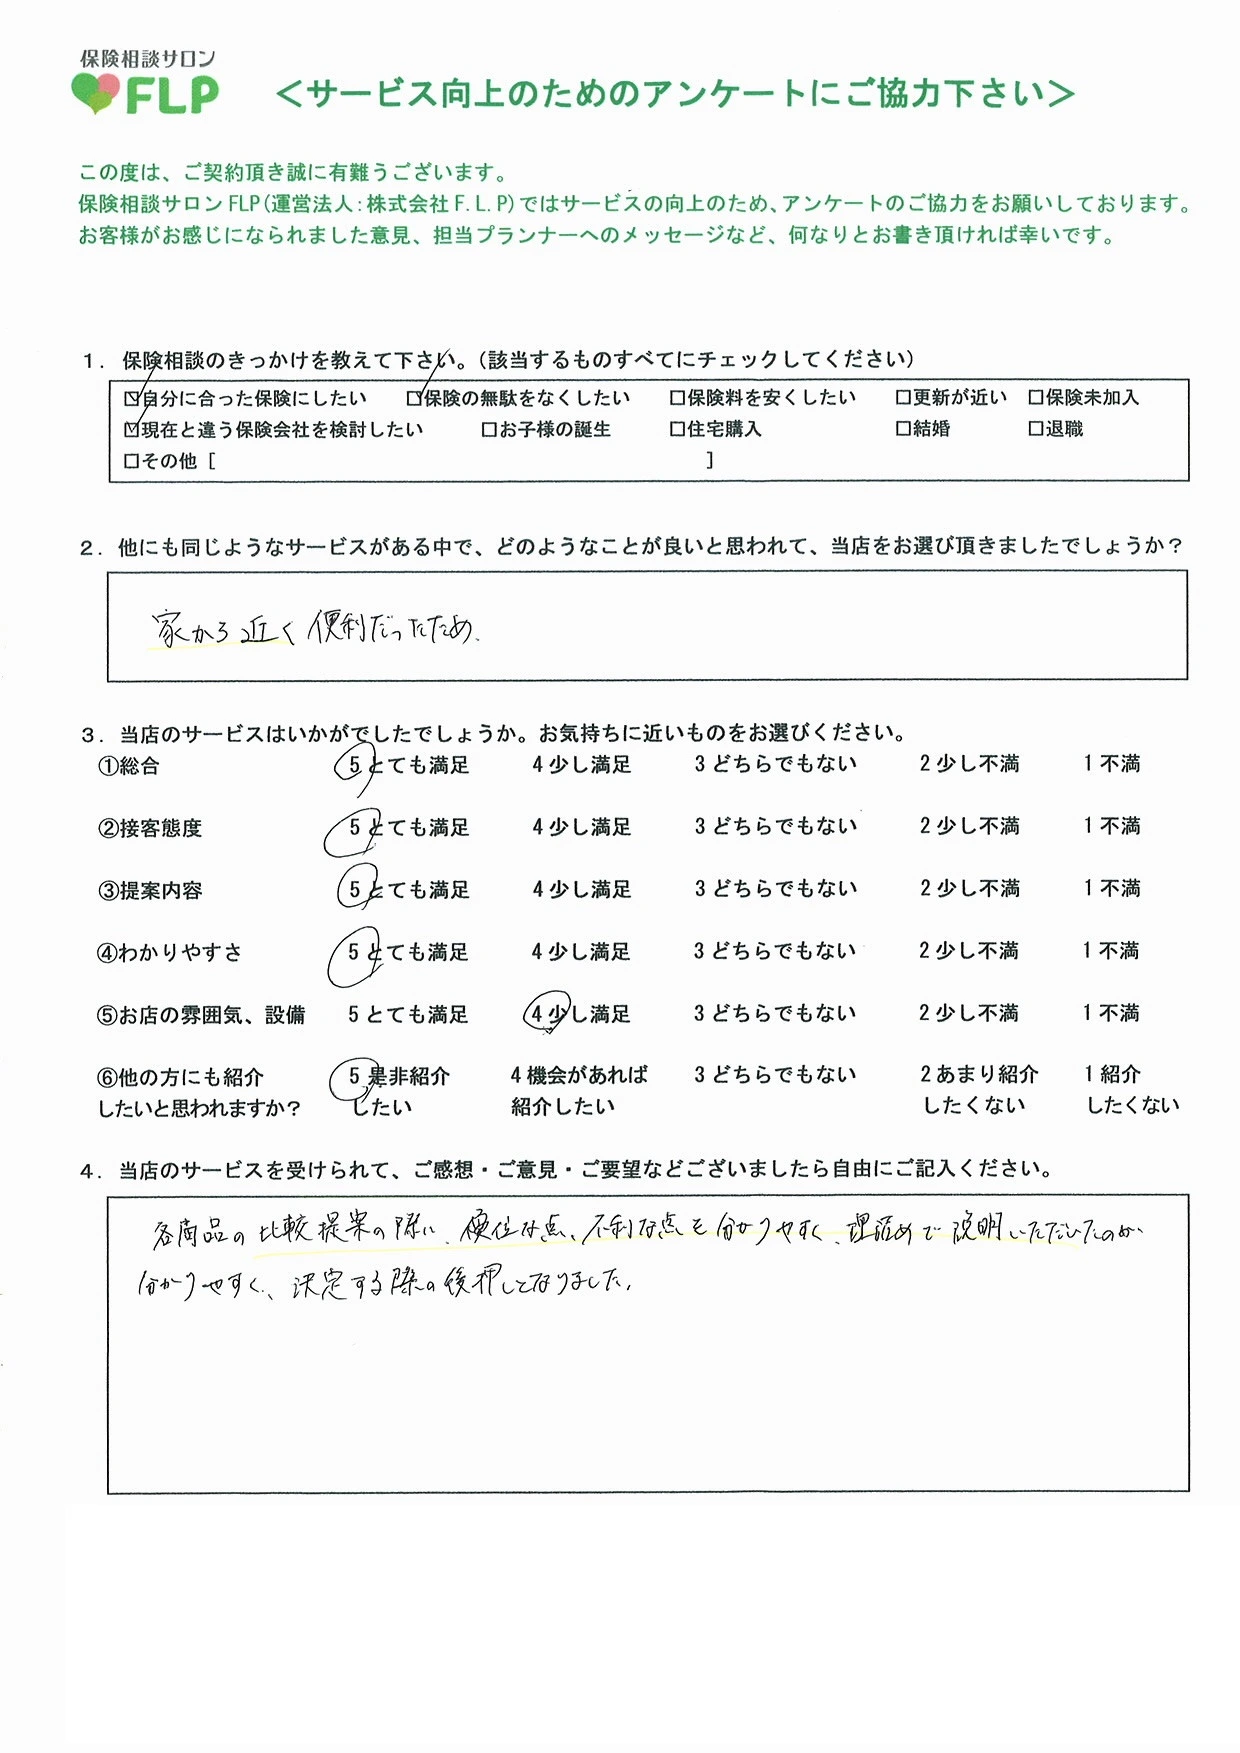 保険相談サロン
FLP
＜サービス向上のためのアンケートにご協力下さい＞
この度は、ご契約頂き誠に有難うございます。
保険相談サロンFLP(運営法人:株式会社F.L.P)ではサービスの向上のため、アンケートのご協力をお願いしております。
お客様がお感じになられました意見、担当プランナーへのメッセージなど、何なりとお書き頂ければ幸いです。
1. 保険相談のきっかけを教えて下さい。(該当するものすべてにチェックしてください)
☑自分に合った保険にしたい ☑保険の無駄をなくしたい □保険料を安くしたい □更新が近い □保険未加入
☑現在と違う保険会社を検討したい □お子様の誕生 □住宅購入 □結婚 □退職
□その他 [ ]
2. 他にも同じようなサービスがある中で、どのようなことが良いと思われて、当店をお選び頂きましたでしょうか？
家から近く便利だったため、
3. 当店のサービスはいかがでしたでしょうか。お気持ちに近いものをお選びください。
①総合 5とても満足 4少し満足 3どちらでもない 2少し不満 1不満
②接客態度 5とても満足 4少し満足 3どちらでもない 2少し不満 1不満
③提案内容 5とても満足 4少し満足 3どちらでもない 2少し不満 1不満
④わかりやすさ 5とても満足 4少し満足 3どちらでもない 2少し不満 1不満
⑤お店の雰囲気、設備 5とても満足 4少し満足 3どちらでもない 2少し不満 1不満
⑥他の方にも紹介 5是非紹介 4機会があれば 3どちらでもない 2あまり紹介 1紹介
したいと思われますか？ したい 紹介したい したくない したくない
4. 当店のサービスを受けられて、ご感想・ご意見・ご要望などございましたら自由にご記入ください。
各商品の比較提案の際に、優位な点、不利な点を分かりやすく、理詰めで説明いただいたのが
分かりやすく、決定する際の後押しとなりました。